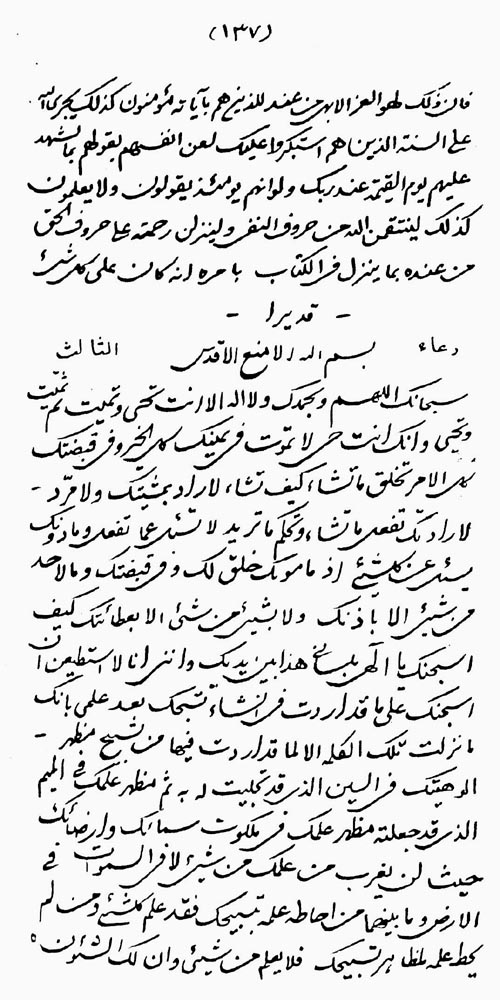 (١٣٧)
فان ذلك لهو العز الابهى من عند للذينهم بآياته مؤمنون كذلك يجرى الله
على السنة الذين هم استكبروا عليك لعن انفسهم بقولهم بما يشهد
عليهم يوم القيمة عند ربك ولو انهم يومئذ يقولون ولا يعلمون
كذلك لينتقمن الله من حروف النفى ولينزلن رحمته على حروف الحق
من عنده بما ينزل فى الكتاب بامره انه كان على كل شئ
- قديرا -
دعاء بسم الله الامنع الاقدس الثالث
سبحانك اللهم وبحمدك ولا اله الا انت تحيى وتميت ثم تميت
وتحيى وانك انت حى لا تموت فى يمينك كل الخير وفى قبضتك
كل الامر تخلق ما تشاء كيف تشاء لا راد بمشيتك ولا مرد -
لارادتك تفعل ما تشاء وتحكم ما تريد لا تسئل عما تفعل وما دونك
يسئل عن كلشئ اذ ما سويك خلق لك وفى قبضتك وما لاحد
من شيئ الا باذنك ولا بشيئ من شئ الا بعطائتك كيف
اسبحنك يا الهى بلسانى هذا بين يديك واننى انا لا استطيعن ان
اسبحنك على ما قد اردت فى انشاء تسبحك بعد علمى بانك
ما نزلت تلك الكلمة الا لما قد اردت فيها من تسبيح مظهر -
الوهيتك فى السين الذى قد تجليت له به ثم مظهر علمك فى الميم
الذى قد جعلته مظهر علمك فى ملكوت سمائك وارضائك
حيث لن يعزب من علمك من شيئ لا فى السموات فى
الارض وما بينهما من احاطه علمه بتسبيحك فقد علم كلشئ ومن لم
يحط علمه بمظاهر تسبيحك فلا يعلم من شيئ وان لك الشئون